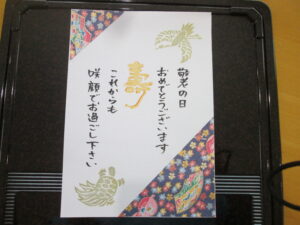 敬老の日
おめでとうございます
寿
これからも
咲顔でお過ごし下さい